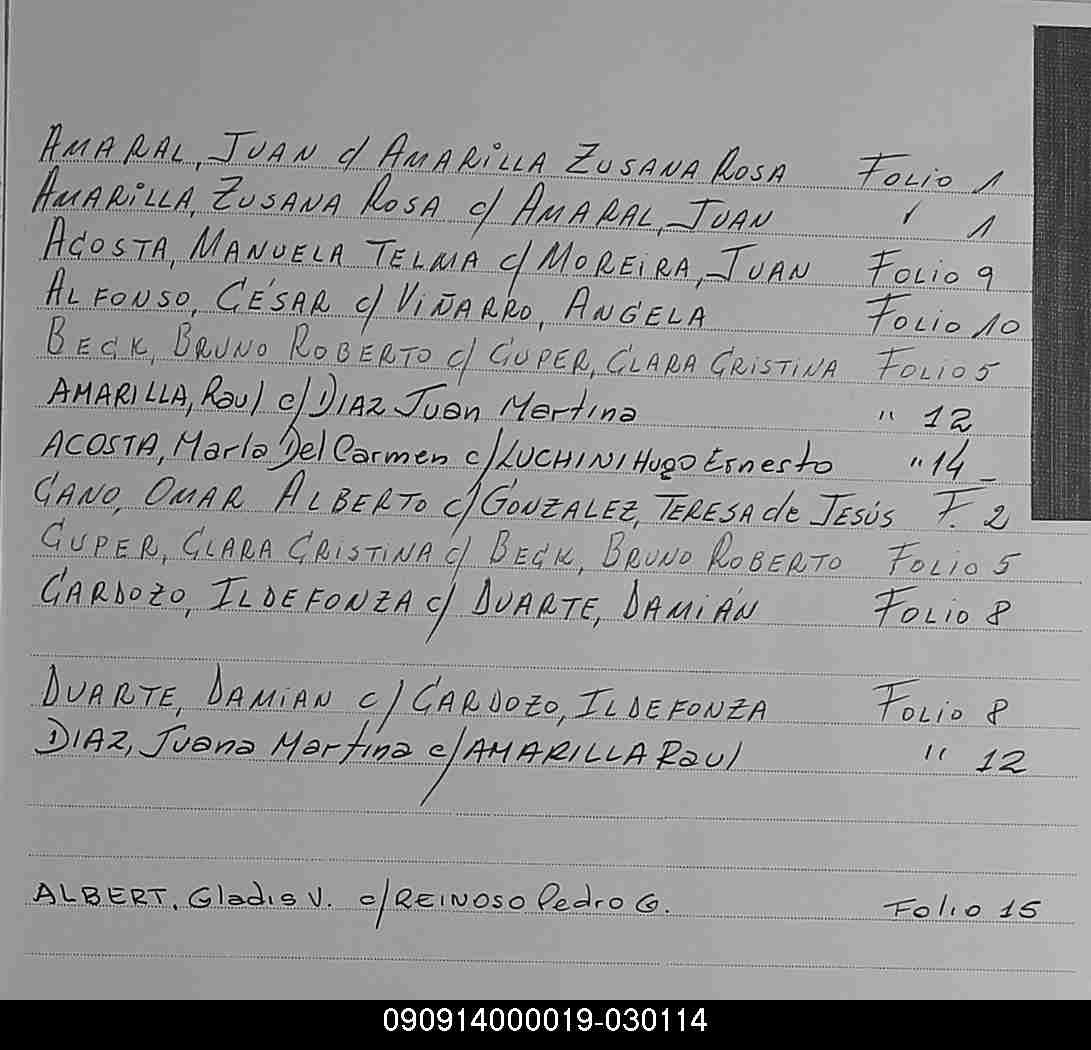 AMARAL, JUAN c/ AMARILLA ZUSANA ROSA FOLIO 1
AMARILLA, ZUSANA ROSA c/ AMARAL, JUAN " 1
ACOSTA, MANUELA TELMA c/ MOREIRA, JUAN FOLIO 9
ALFONSO, CÉSAR c/ VIÑARRO, ANGELA FOLIO 10
BECK, BRUNO ROBERTO c/ CUPER, CLARA CRISTINA FOLIO 5
AMARILLA, Raul c/ DIAZ Juan Martina " 12
ACOSTA, María Del Carmen c/ LUCHINI Hugo Ernesto " 14
CANO, OMAR ALBERTO c/ GONZALEZ, TERESA de JESÚS F. 2
CUPER, CLARA CRISTINA c/ BECK, BRUNO ROBERTO FOLIO 5
CARDOZO, ILDEFONZA c/ DUARTE, DAMIÁN FOLIO 8
DUARTE, DAMIAN c/ CARDOZO, ILDEFONZA FOLIO 8
DIAZ, Juana Martina c/ AMARILLA Raul " 12
ALBERT, Gladis V. c/ REINOSO Pedro G. Folio 15
090914000019-030114